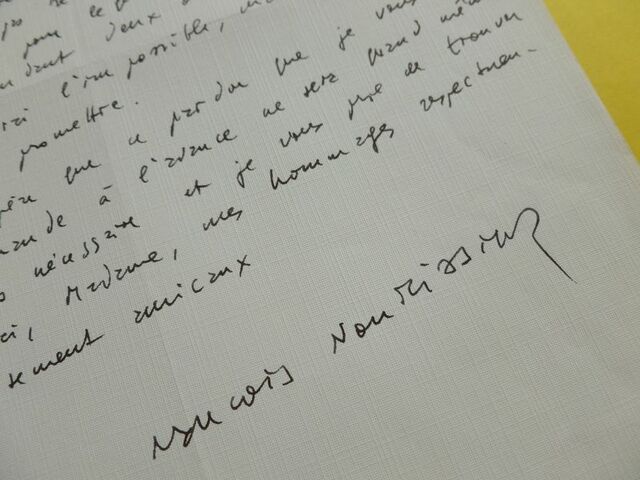 pour
dont deux
l'impossible,
promettre.
que ce pardon que je vous
à l'avance ne sera quand même
nécessaire et je vous prie de trouver
ici, Madame, mes hommages respectueu-
sement amicaux
François Nourissier